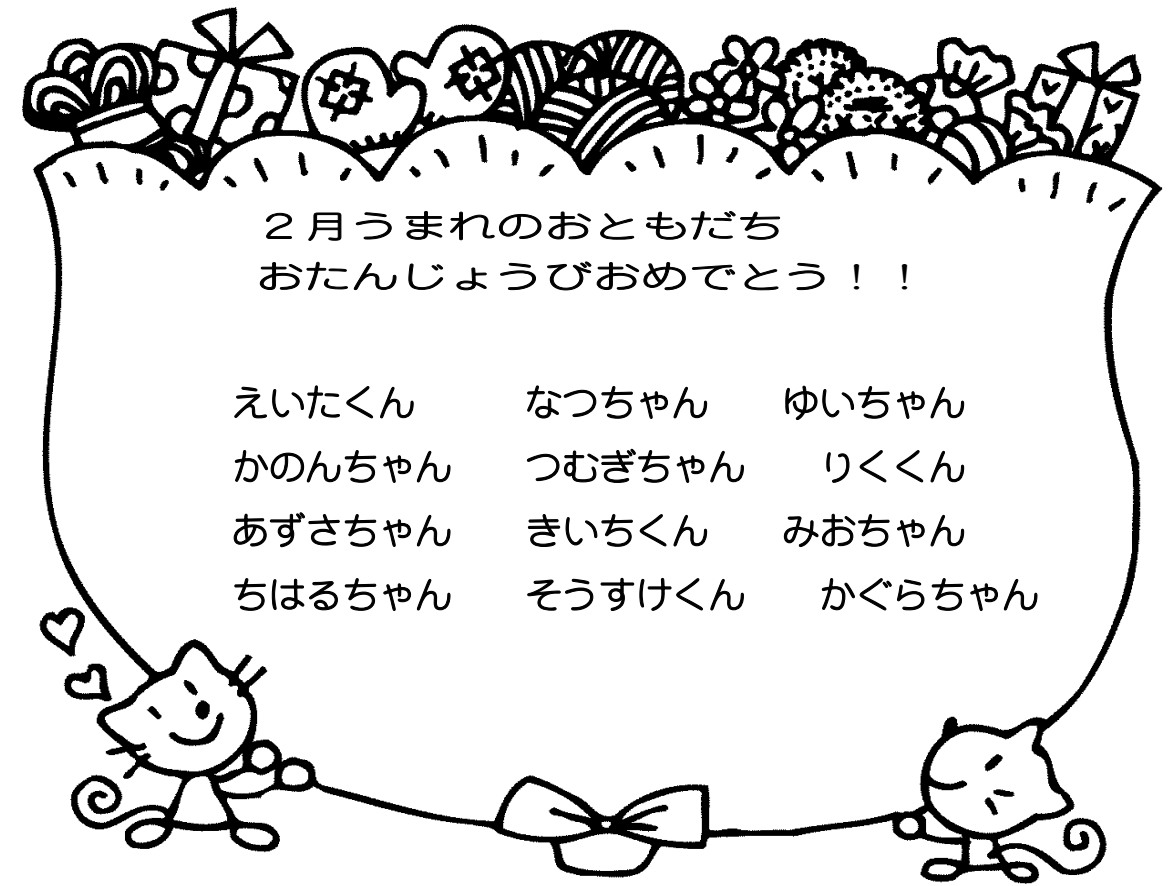 ２月うまれのおともだち
おたんじょうびおめでとう！！
えいたくん　なつちゃん　ゆいちゃん
かのんちゃん　つむぎちゃん　りくくん
あずさちゃん　きいちくん　みおちゃん
ちはるちゃん　そうすけくん　かぐらちゃん